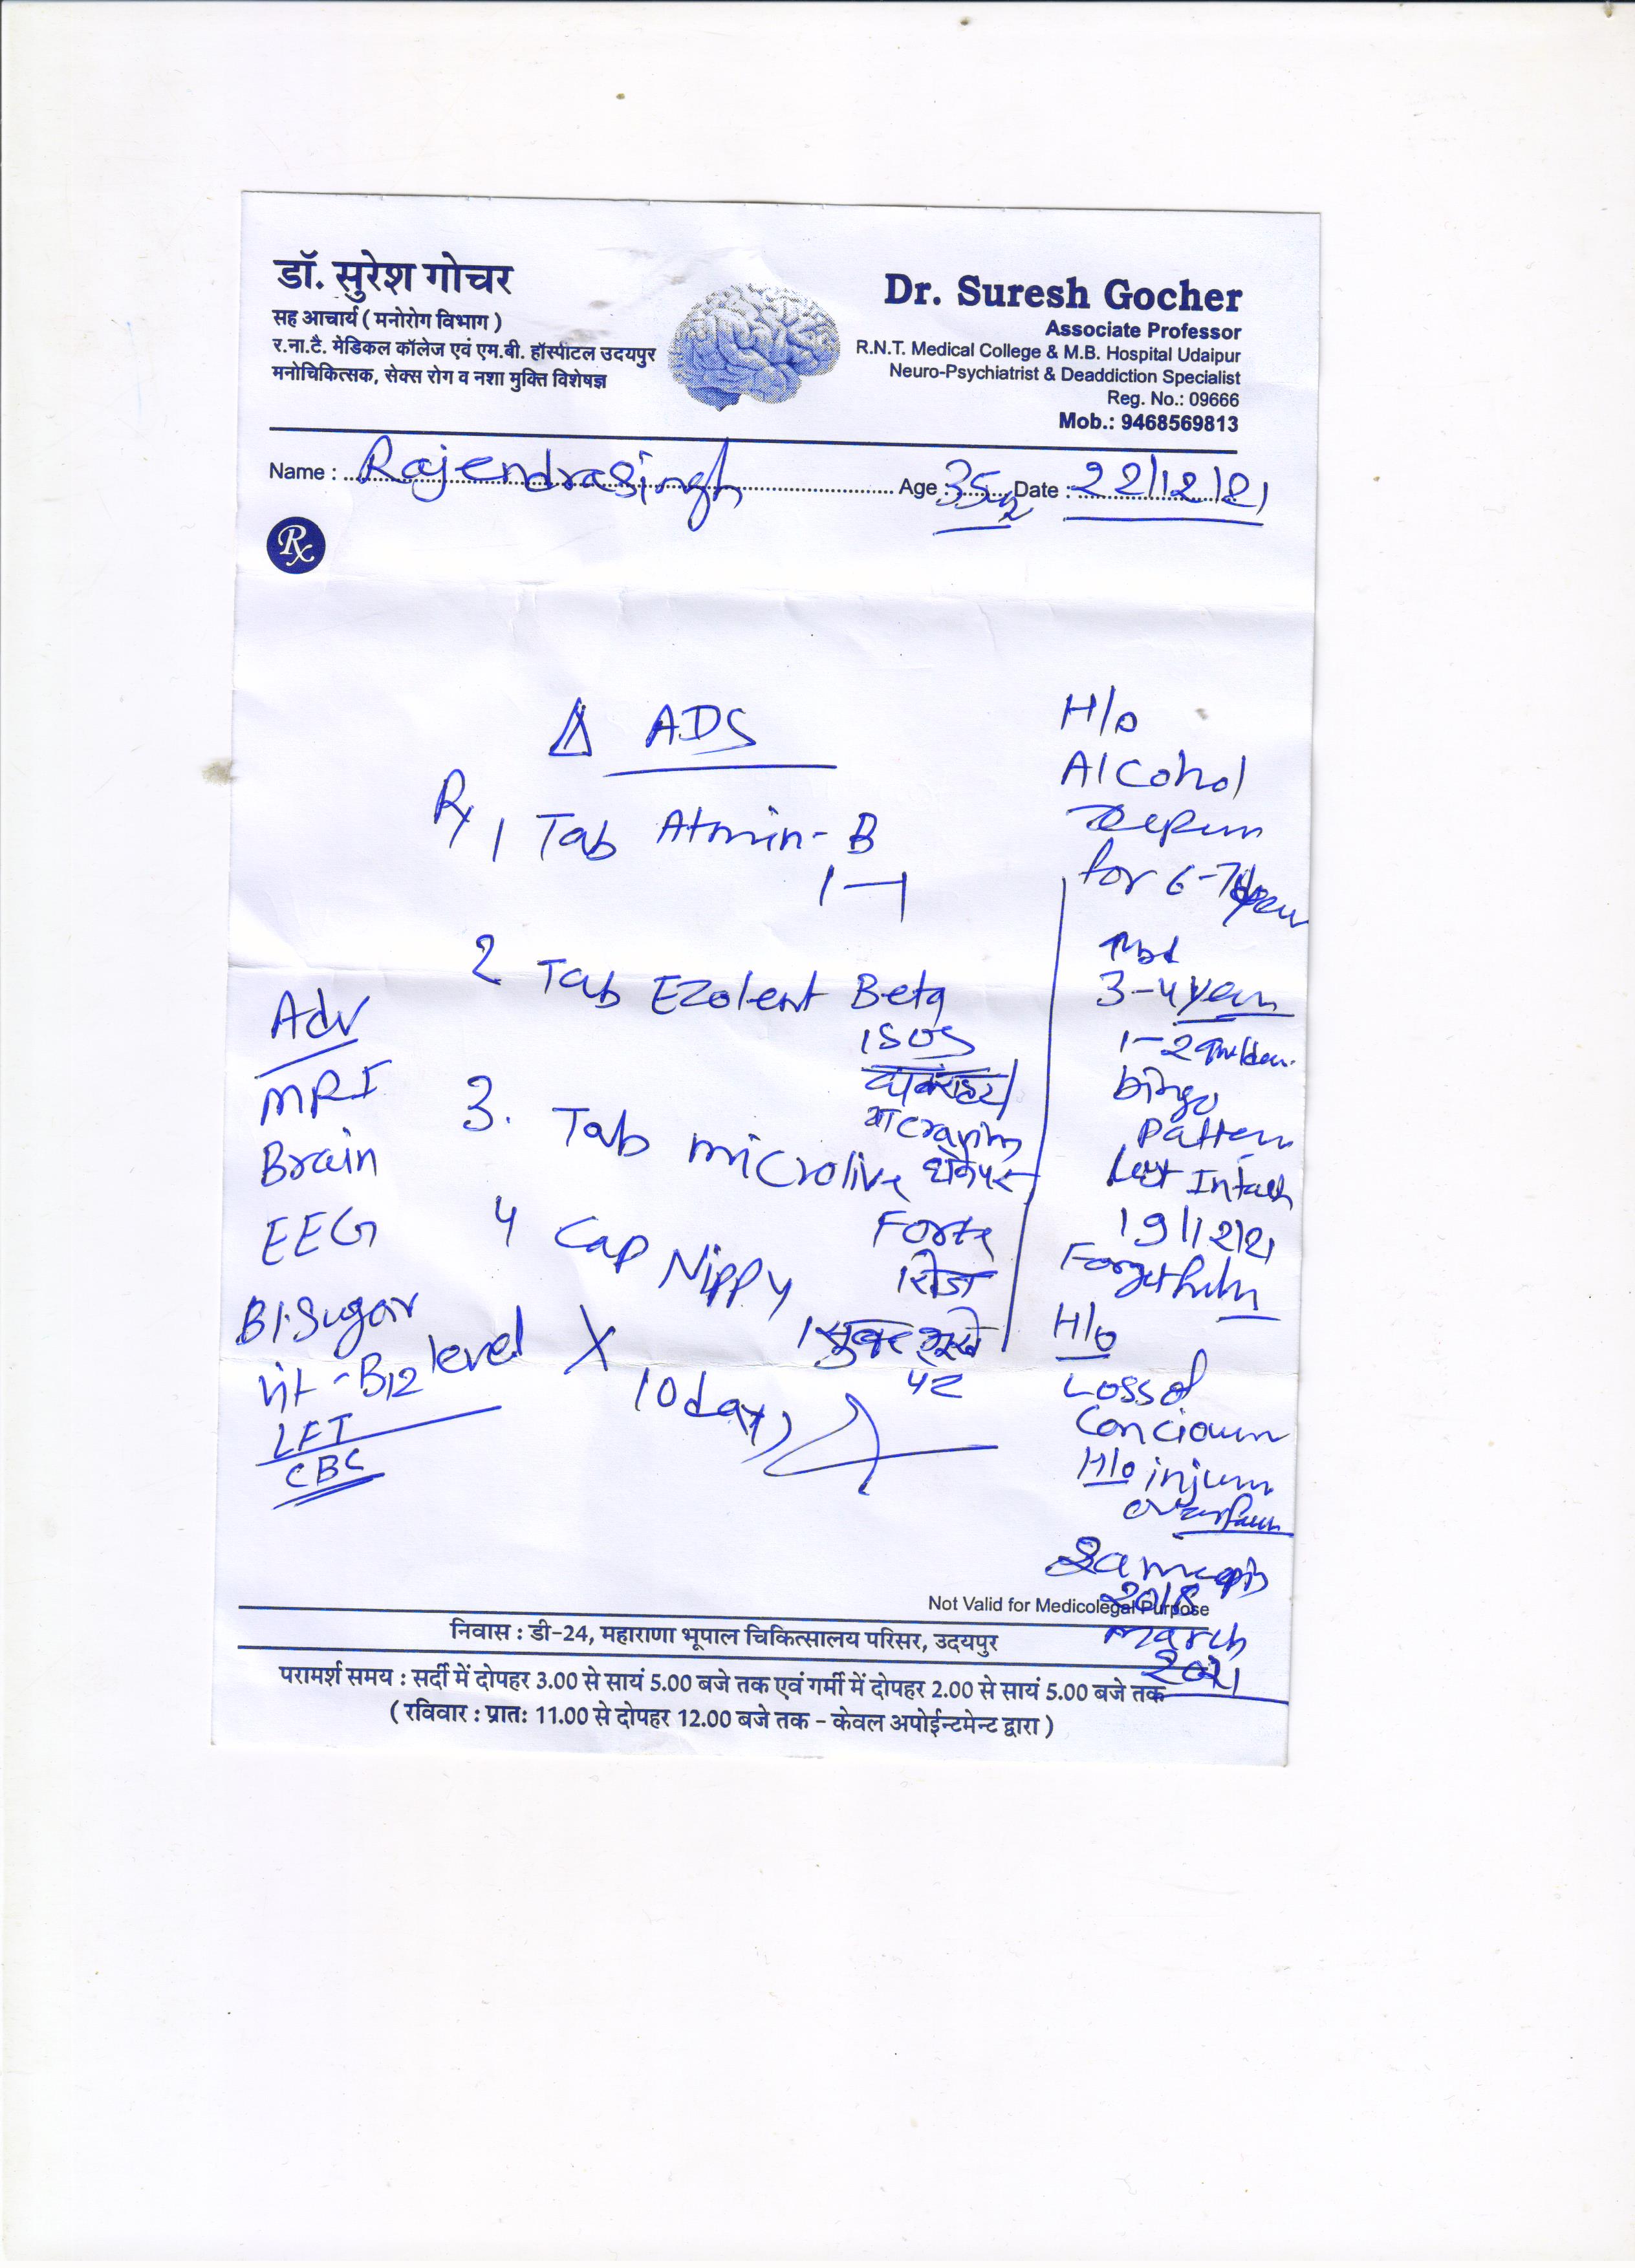 डॉ. सुरेश गोचर
सह आचार्य ( मनोरोग विभाग )
र.ना.टै. मेडिकल कॉलेज एवं एम.बी. हॉस्पीटल उदयपुर
मनोचिकित्सक, सेक्स रोग व नशा मुक्ति विशेषज्ञ
Dr. Suresh Gocher
Associate Professor
R.N.T. Medical College & M.B. Hospital Udaipur
Neuro-Psychiatrist & Deaddiction Specialist
Reg. No.: 09666
Mob.: 9468569813
Name : Rajendrasingh Age : 35 Date : 22/12/21
Rx
Δ ADS
Rx 1 Tab Atmin-B
1—1
2 Tab Ezolent Beta
1 SOS
craving
3. Tab microlive
Forte
1 रोज
4 Cap Nippy
1 सुबह भूखे
पेट
X 10 days
Adv
MRI
Brain
EEG
Bl.Sugar
Vit-B12 level
LFT
CBC
H/o
Alcohol
for 6-7
3-4 year
1-2
pattern
Last Intake
19/12/21
H/o
Loss of
H/o
2018
March
2021
Not Valid for Medicolegal Purpose
निवास : डी-24, महाराणा भूपाल चिकित्सालय परिसर, उदयपुर
परामर्श समय : सर्दी में दोपहर 3.00 से सायं 5.00 बजे तक एवं गर्मी में दोपहर 2.00 से सायं 5.00 बजे तक
( रविवार : प्रातः 11.00 से दोपहर 12.00 बजे तक - केवल अपोईन्टमेन्ट द्वारा )